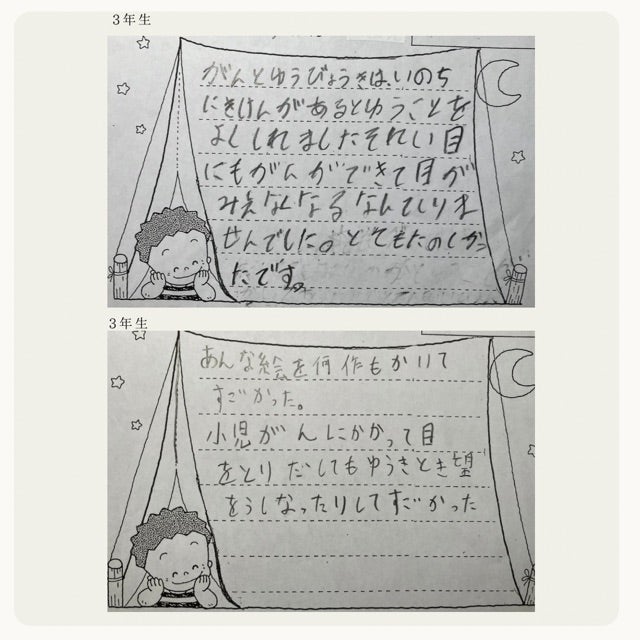 3年生
がんとゆうびょうきは、いのち
にきけんがあるとゆうことを
しれました目
にもがんができて目が
みえなくなるなんてしりま
せんでした。とてもたのしかっ
たです。
3年生
あんな絵を何作もかいて
すごかった。
小児がんにかかって目
をとりだしてもゆうきとき望
をうしなったりしてすごかった